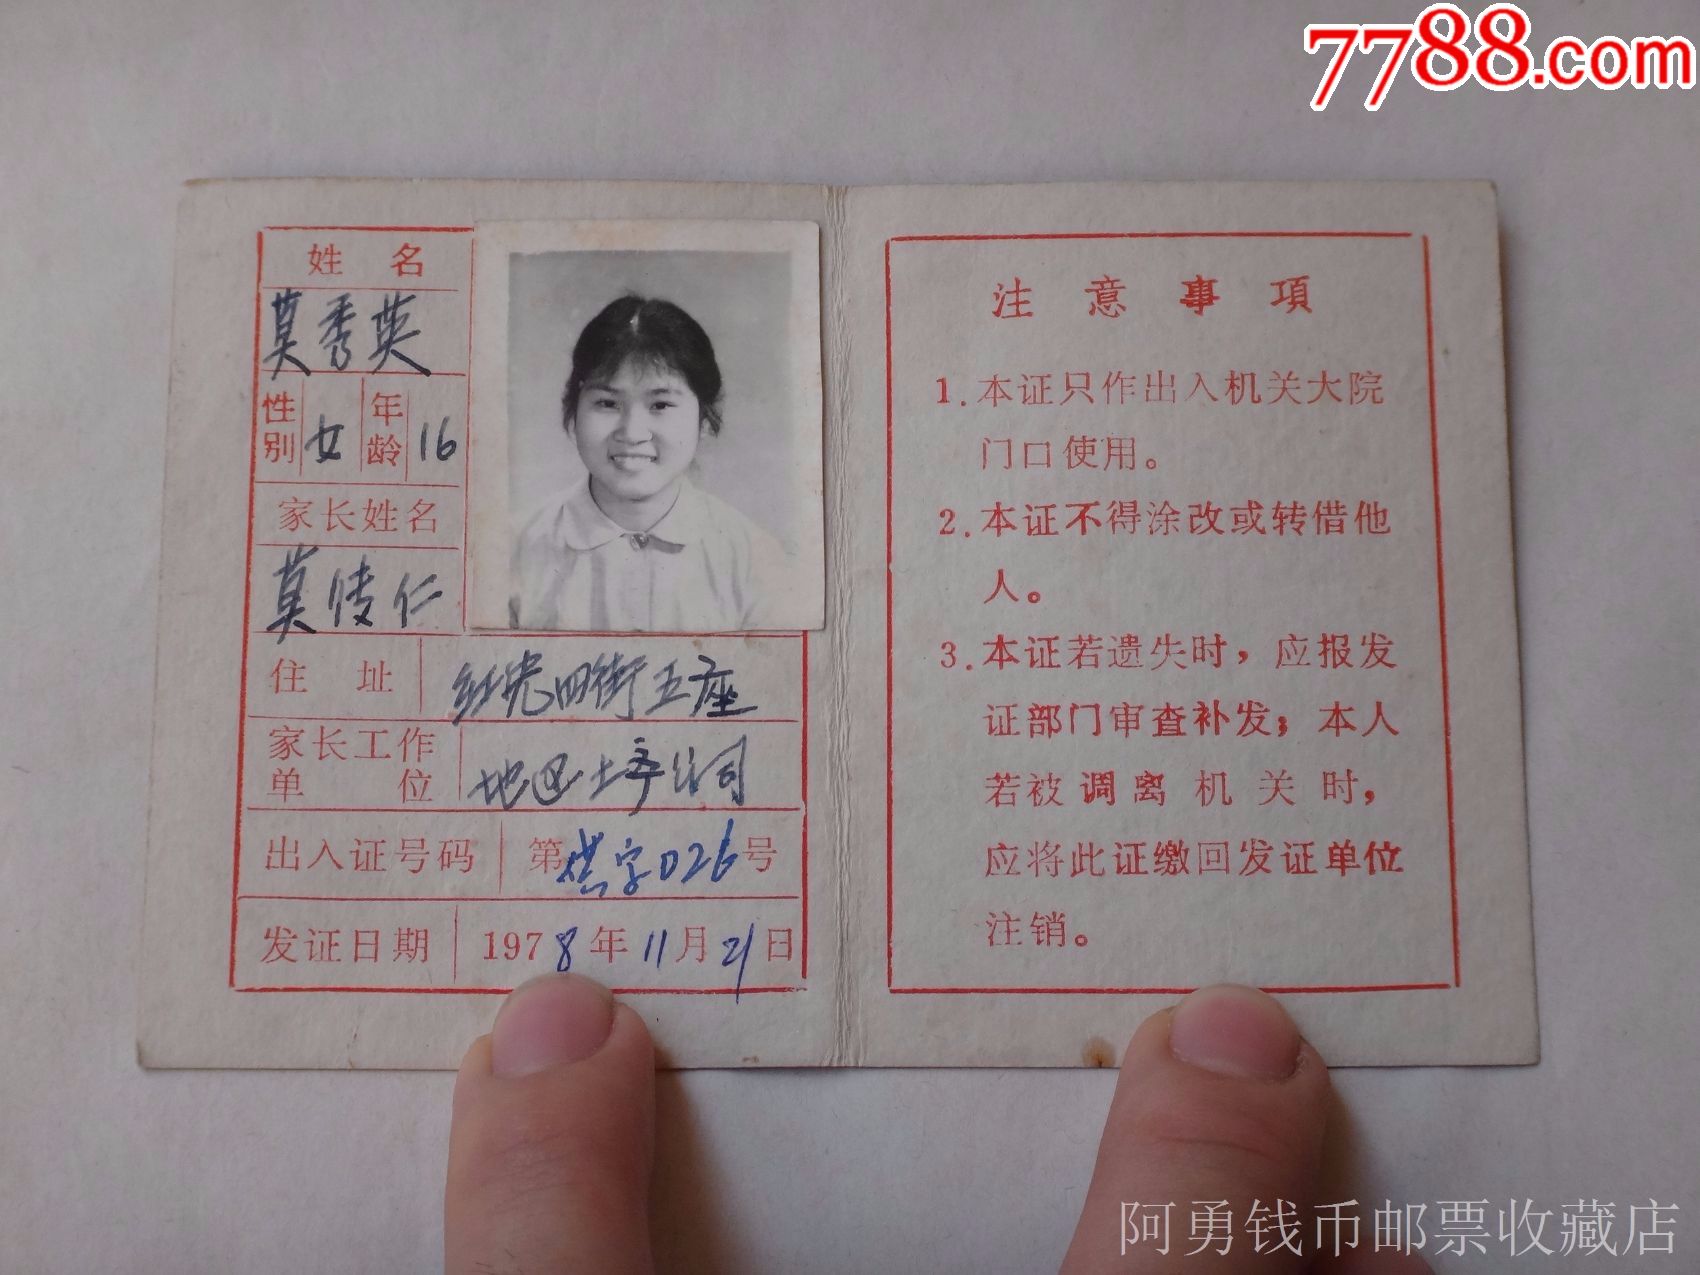 7788.com
姓 名
莫秀英
性别 女 年龄 16
家长姓名
莫传仁
住 址 红光四街五座
家长工作单位 地区土产公司
出入证号码 第 字026号
发证日期 1978年11月21日
注意事項
1.本证只作出入机关大院
门口使用。
2.本证不得涂改或转借他
人。
3.本证若遗失时，应报发
证部门审查补发；本人
若被调离机关时，
应将此证缴回发证单位
注销。
阿勇钱币邮票收藏店